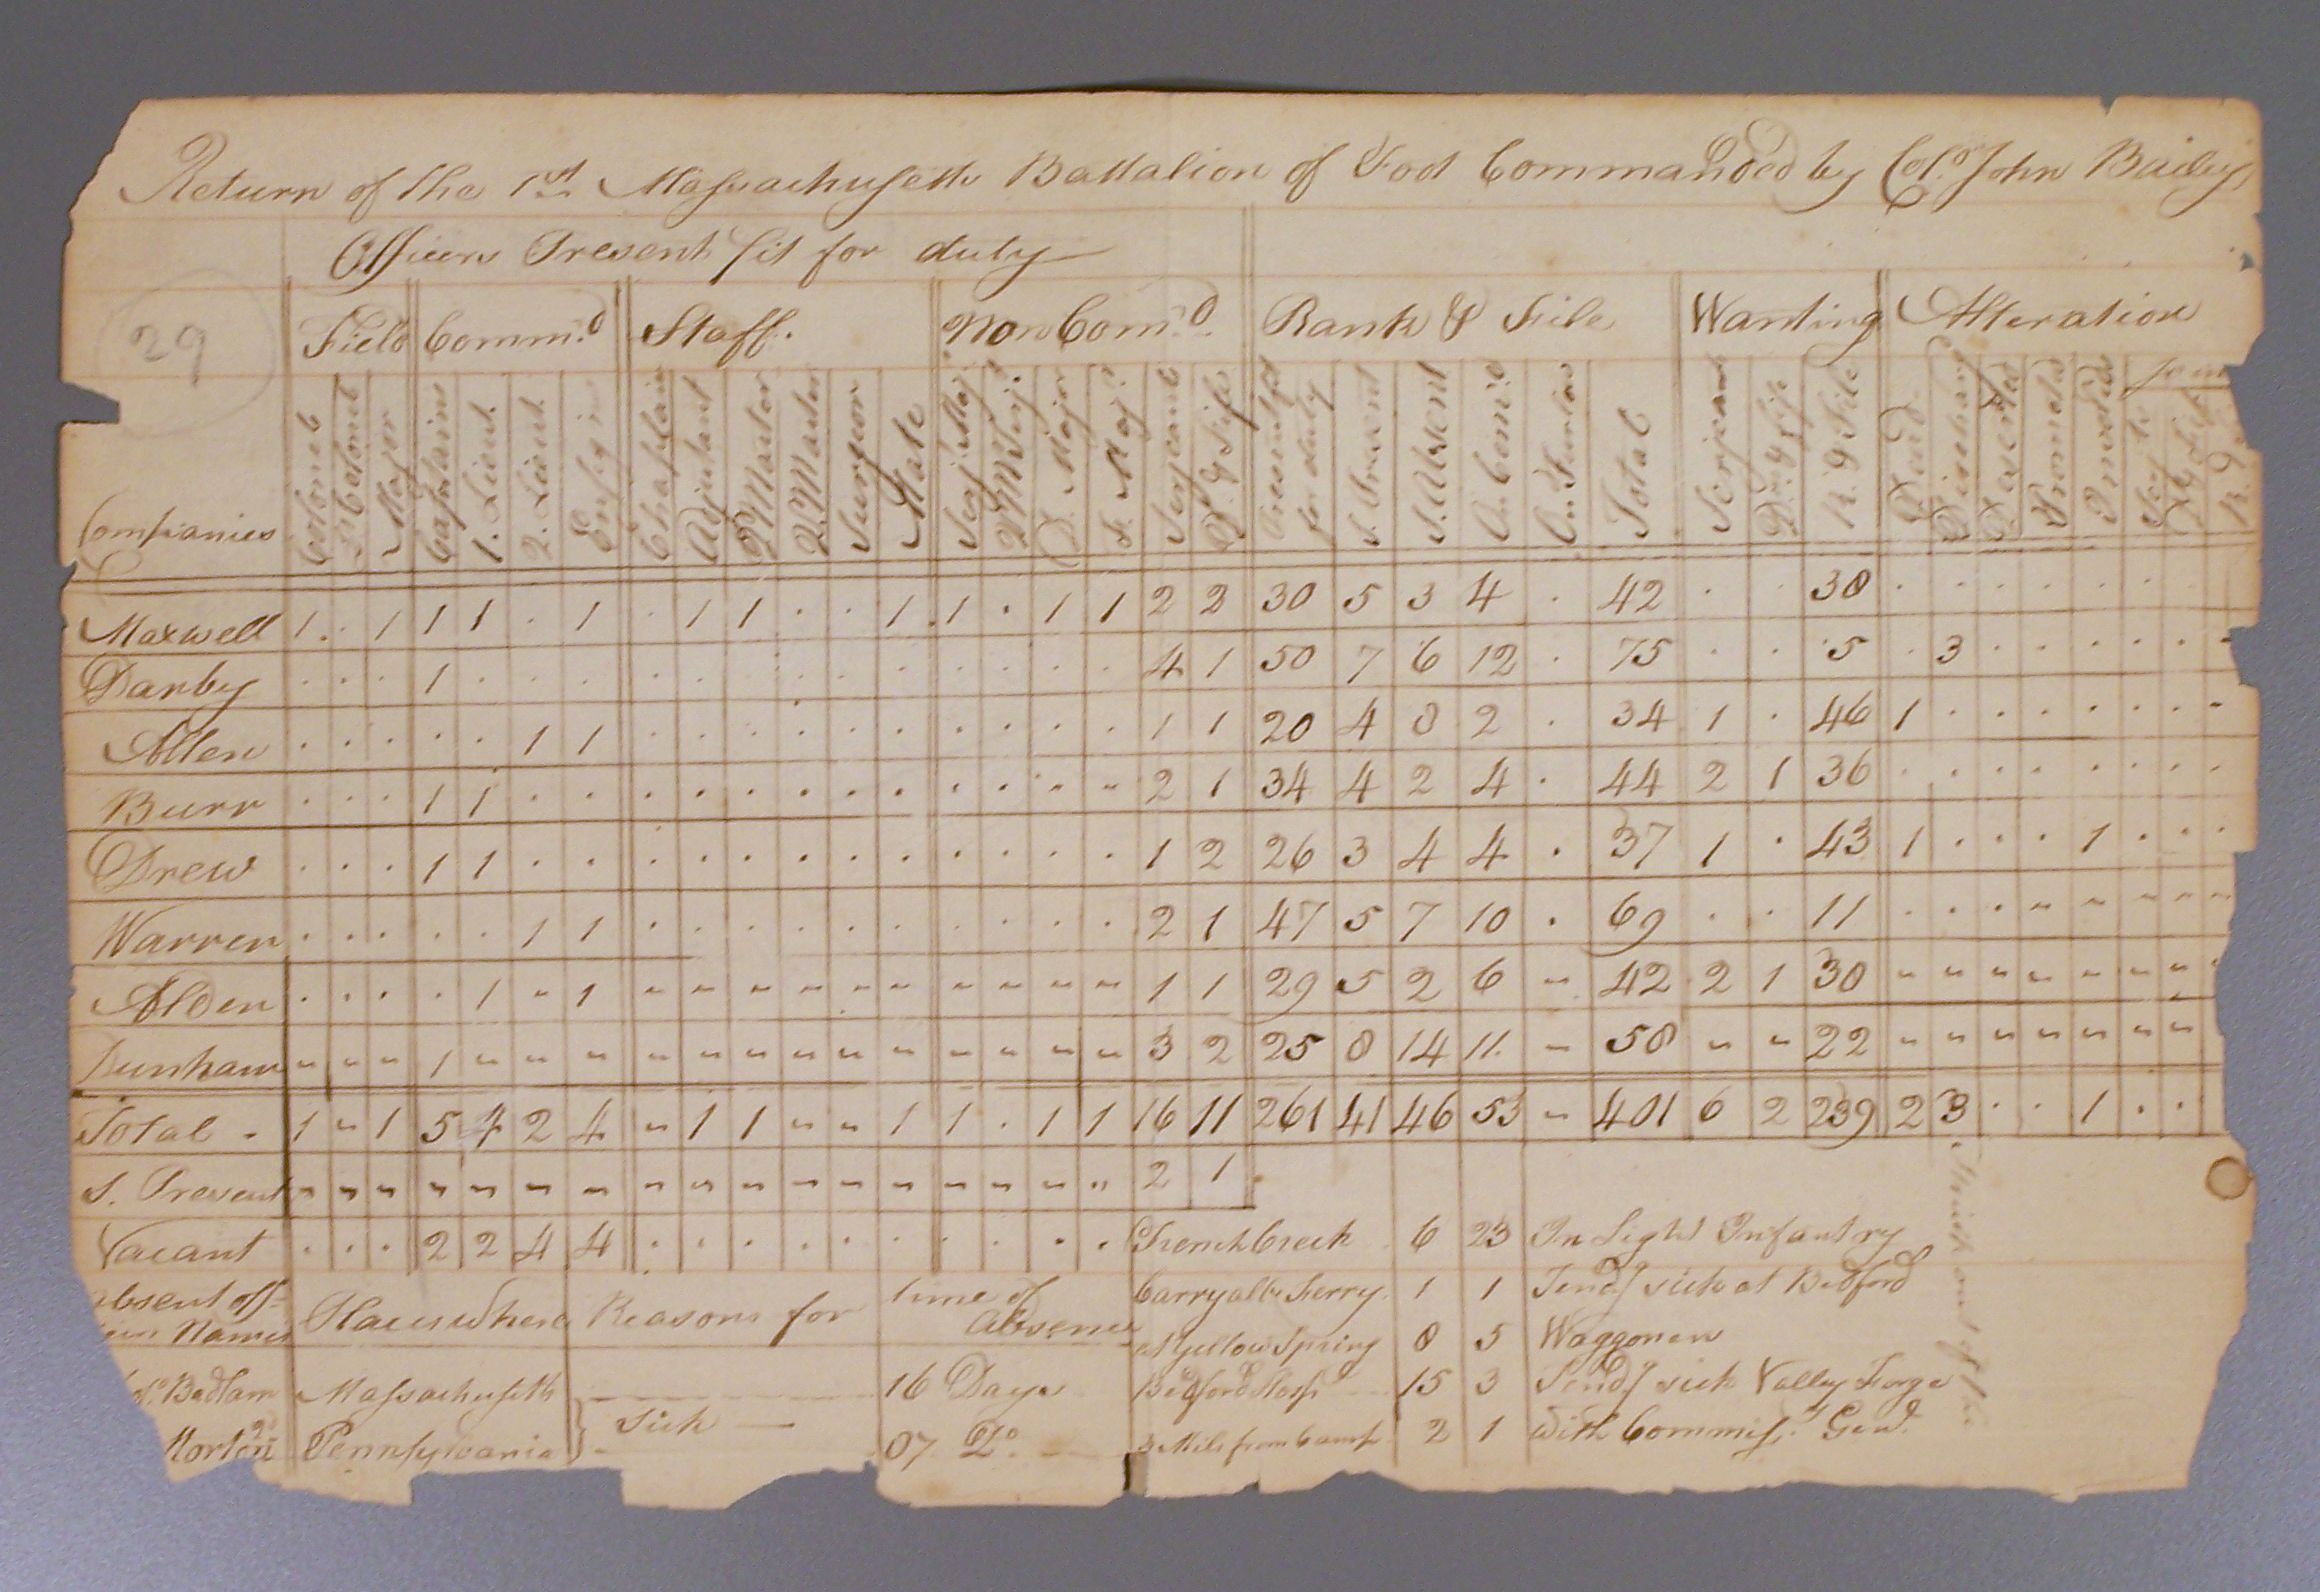 Return of the 1st Massachusetts Battalion of Foot Commanded by Col.o John Bailey
Officers Present fit for duty
29
Field Comm.d Staff. Non Com.d Rank & File Wanting Alteration
Companies Colonel Lt Colonel Major Captains 1. Lieut. 2. Lieut. Ensign Chaplain Adjutant P Master Q. Master Surgeon Mate Serj. Maj.r Q M Serj.t D. Major F. Maj.r Serjeants D. & Fifes Present fit for duty S. Present S. Absent On Com.d On Furlow Total Serjeants D. & Fife R. & File Dead Discharg Deserted Promoted
Maxwell 1 . . 1 1 1 . 1 . 1 1 . . 1 1 . 1 1 2 2 30 5 3 4 . 42 . . 38 . . . . . . .
Darby . . . 1 . . . . . . . . . . . . . 4 1 50 7 6 12 . 75 . . 5 . 3 . . . . . -
Allen . . . . . 1 1 . . . . . . . . . . 1 1 20 4 8 2 . 34 1 . 46 1 . . . . . . -
Burr . . . 1 1 . . . . . . . . . . . " 2 1 34 4 2 4 . 44 2 1 36 . . . . . . . .
Drew . . . 1 1 . . . . . . . . . . . . 1 2 26 3 4 4 . 37 1 . 43 1 . . . 1 . . .
Warren . . . . . 1 1 . . . . . . . . . . 2 1 47 5 7 10 . 69 . . 11 . . . " " " " "
Alden . . . . 1 " 1 " " " " " " " " " " 1 1 29 5 2 6 " 42 2 1 38 " " " " " " "
Dunham " " " 1 " " " " " " " " " " " " " 3 2 25 8 14 11. " 58 " " 22 " " " " " " "
Total - 1 " 1 5 4 2 4 " 1 1 " " 1 1 . 1 1 16 11 261 41 46 53 " 401 6 2 239 2 3 . . 1 . .
S. Present " " " " " " " " " " " " " " " " " 2 1
Vacant . . . 2 2 4 4 . . . . . . . . . . French Creek 6 23 In Light Infantry
absent off= Places where Reasons for time of Absence Carryalls Ferry. 1 1 Tend.g sick at Bedford
Names at Yellow Spring 8 5 Waggoners
Badlam Massachusetts 16 Days Bedford Hosp.l 15 3 Tend.g sick Valley Forge
Morton Pennsylvania } Sick 07 D.o 3 Mile from Camp 2 1 With Commiss.y Gen.l